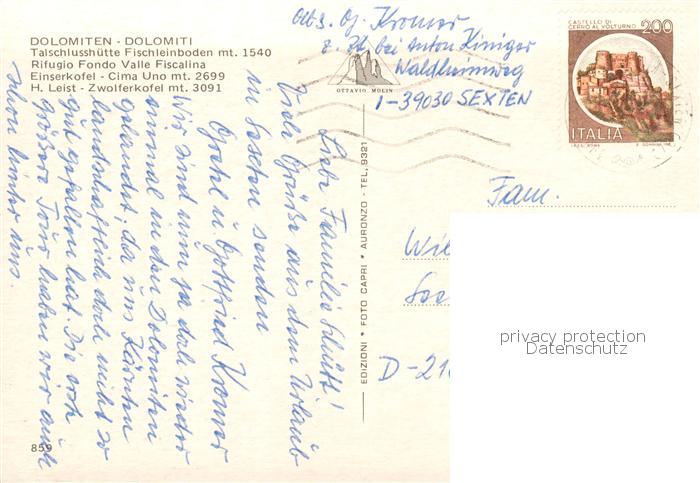 DOLOMITEN - DOLOMITI
Talschlusshütte Fischleinboden mt. 1540
Rifugio Fondo Valle Fiscalina
Einserkofel - Cima Uno mt. 2699
H. Leist - Zwolferkofel mt. 3091
OTTAVIO MOLIN
Abs. Gj. Kromer
z. Zt. bei Anton Kiniger
Waldheimweg
I-39030 SEXTEN
CASTELLO DI
CERRO AL VOLTURNO
200
ITALIA
I.P.Z.S. ROMA
Liebe Familie Schütt!
Viele Grüße aus dem Urlaub
in Sexten senden
Gretel u. Gottfried Kromer
Wir sind nun ja doch wieder
einmal in den Dolomiten
gelandet, da uns Kärnten
landschaftlich doch nicht so
gut gefallen hat. Die erste
größere Tour haben wir auch
schon hinter uns.
EDIZIONI • FOTO CAPRI • AURONZO - TEL. 9321
Fam.
D-21
859
privacy protection
Datenschutz